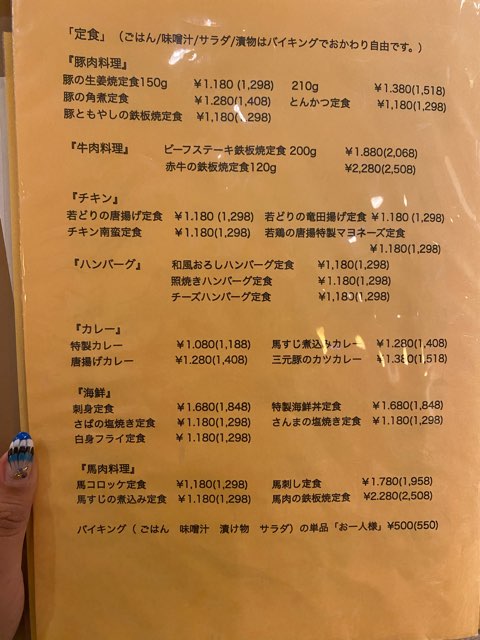 「定食」（ごはん/味噌汁/サラダ/漬物はバイキングでおかわり自由です。）
『豚肉料理』
豚の生姜焼定食150g ￥1.180 (1,298) 210g ￥1.380(1,518)
豚の角煮定食 ￥1.280(1,408) とんかつ定食 ￥1,180(1,298)
豚ともやしの鉄板焼定食 ￥1,180(1,298)
『牛肉料理』 ビーフステーキ鉄板焼定食 200g ￥1.880(2,068)
赤牛の鉄板焼定食120g ¥2,280(2,508)
『チキン』
若どりの唐揚げ定食 ￥1.180 (1,298) 若どりの竜田揚げ定食 ￥1.180 (1,298)
チキン南蛮定食 ￥1.180 (1,298) 若鶏の唐揚特製マヨネーズ定食
￥1,180(1,298)
『ハンバーグ』 和風おろしハンバーグ定食 ￥1,180(1,298)
照焼きハンバーグ定食 ￥1.180(1,298)
チーズハンバーグ定食 ￥1,180(1,298)
『カレー』
特製カレー ￥1.080(1,188) 馬すじ煮込みカレー ￥1.280(1,408)
唐揚げカレー ￥1.280(1,408) 三元豚のカツカレー ￥1.380(1,518)
『海鮮』
刺身定食 ￥1.680(1,848) 特製海鮮丼定食 ￥1.680(1,848)
さばの塩焼き定食 ￥1.180(1,298) さんまの塩焼き定食 ￥1.180(1,298)
白身フライ定食 ￥1.180(1,298)
『馬肉料理』
馬コロッケ定食 ￥1,180(1,298) 馬刺し定食 ￥1.780(1,958)
馬すじの煮込み定食 ￥1.180(1,298) 馬肉の鉄板焼定食 ¥2.280(2,508)
バイキング（ ごはん 味噌汁 漬け物 サラダ）の単品「お一人様」¥500(550)